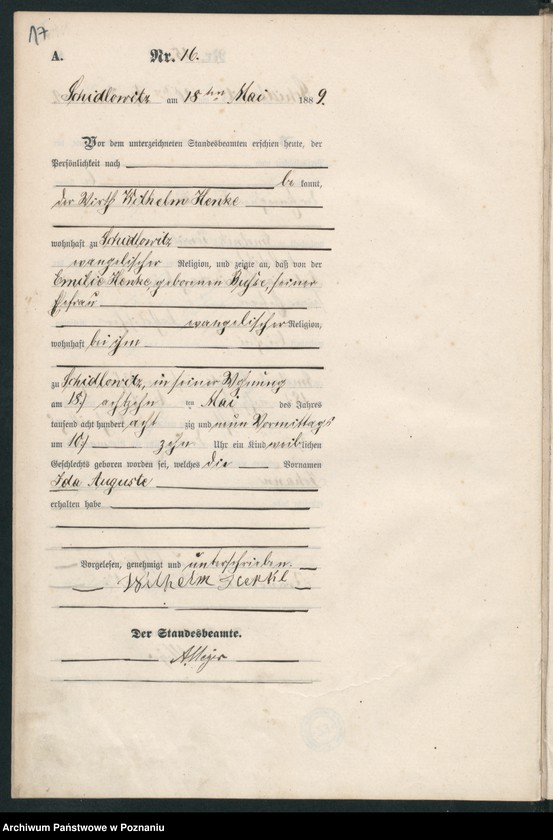 17
A. Nr. 16.
Schidlowitz am 18ten Mai 1889.
Vor dem unterzeichneten Standesbeamten erschien heute, der
Persönlichkeit nach
be kannt,
der Wirth Wilhelm Henke
wohnhaft zu Schidlowitz
evangelischer Religion, und zeigte an, daß von der
Emilie Henke, geborenen Busse, seiner
Ehefrau
evangelischer Religion,
wohnhaft bei ihm
zu Schidlowitz, in seiner Wohnung
am 18) achtzehn ten Mai des Jahres
tausend acht hundert acht zig und neun Vormittags
um 10) zehn Uhr ein Kind weiblichen
Geschlechts geboren worden sei, welches die Vornamen
Ida Auguste
erhalten habe
Vorgelesen, genehmigt und unterschrieben.
Wilhelm Henke
Der Standesbeamte.
Archiwum Państwowe w Poznaniu